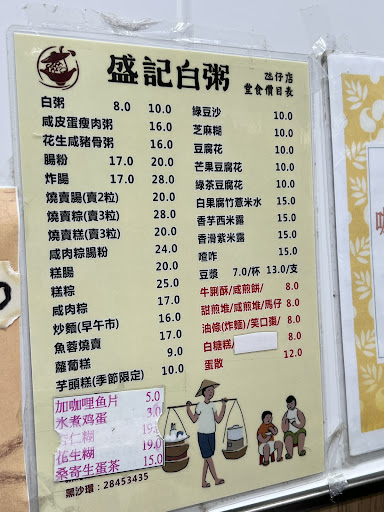 盛記白粥
氹仔店
堂食價目表
白粥 8.0 10.0
咸皮蛋瘦肉粥 16.0
花生咸豬骨粥 16.0
腸粉 17.0 20.0
炸腸 17.0 28.0
燒賣腸(賣2粒) 20.0
燒賣粽(賣3粒) 28.0
燒賣糕(賣3粒) 20.0
咸肉粽腸粉 24.0
糕腸 20.0
糕粽 25.0
咸肉粽 17.0
炒麵(早午市) 16.0
魚蓉燒賣 17.0
蘿蔔糕 9.0
芋頭糕(季節限定) 10.0
加咖哩鱼片 5.0
水煮鸡蛋 3.0
仁糊
花生糊 19.0
桑寄生蛋茶 15.0
黑沙環:28453435
綠豆沙 10.0
芝麻糊 10.0
豆腐花 10.0
芒果豆腐花 10.0
綠茶豆腐花 10.0
白果腐竹薏米水 10.0
香芋西米露 15.0
香滑紫米露 15.0
喳咋 15.0
豆漿 7.0/杯 13.0/支
牛脷酥/咸煎餅/ 8.0
甜煎堆/咸煎堆/馬仔 8.0
油條(炸麵)/笑口棗/ 8.0
白糖糕/ 8.0
蛋散 12.0